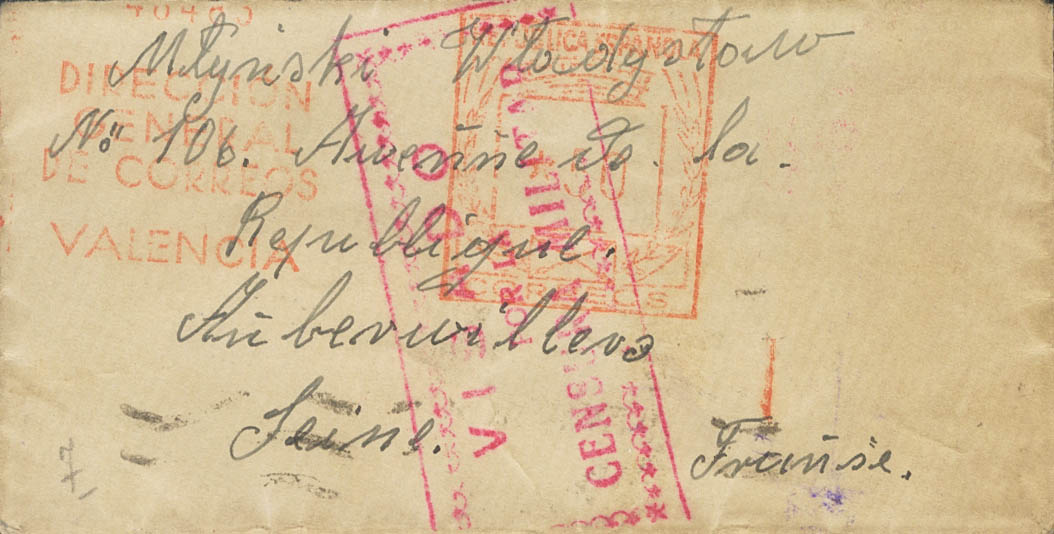 DIRECCION
GENERAL
DE CORREOS
VALENCIA
REPUBLICA ESPAÑOLA
CORREOS
VISADO
POR LA
CENSURA MILITAR
Młyński Władysław
No 106. Aveńue de. la.
Republique.
Auberwillers
Seine.
Franse.